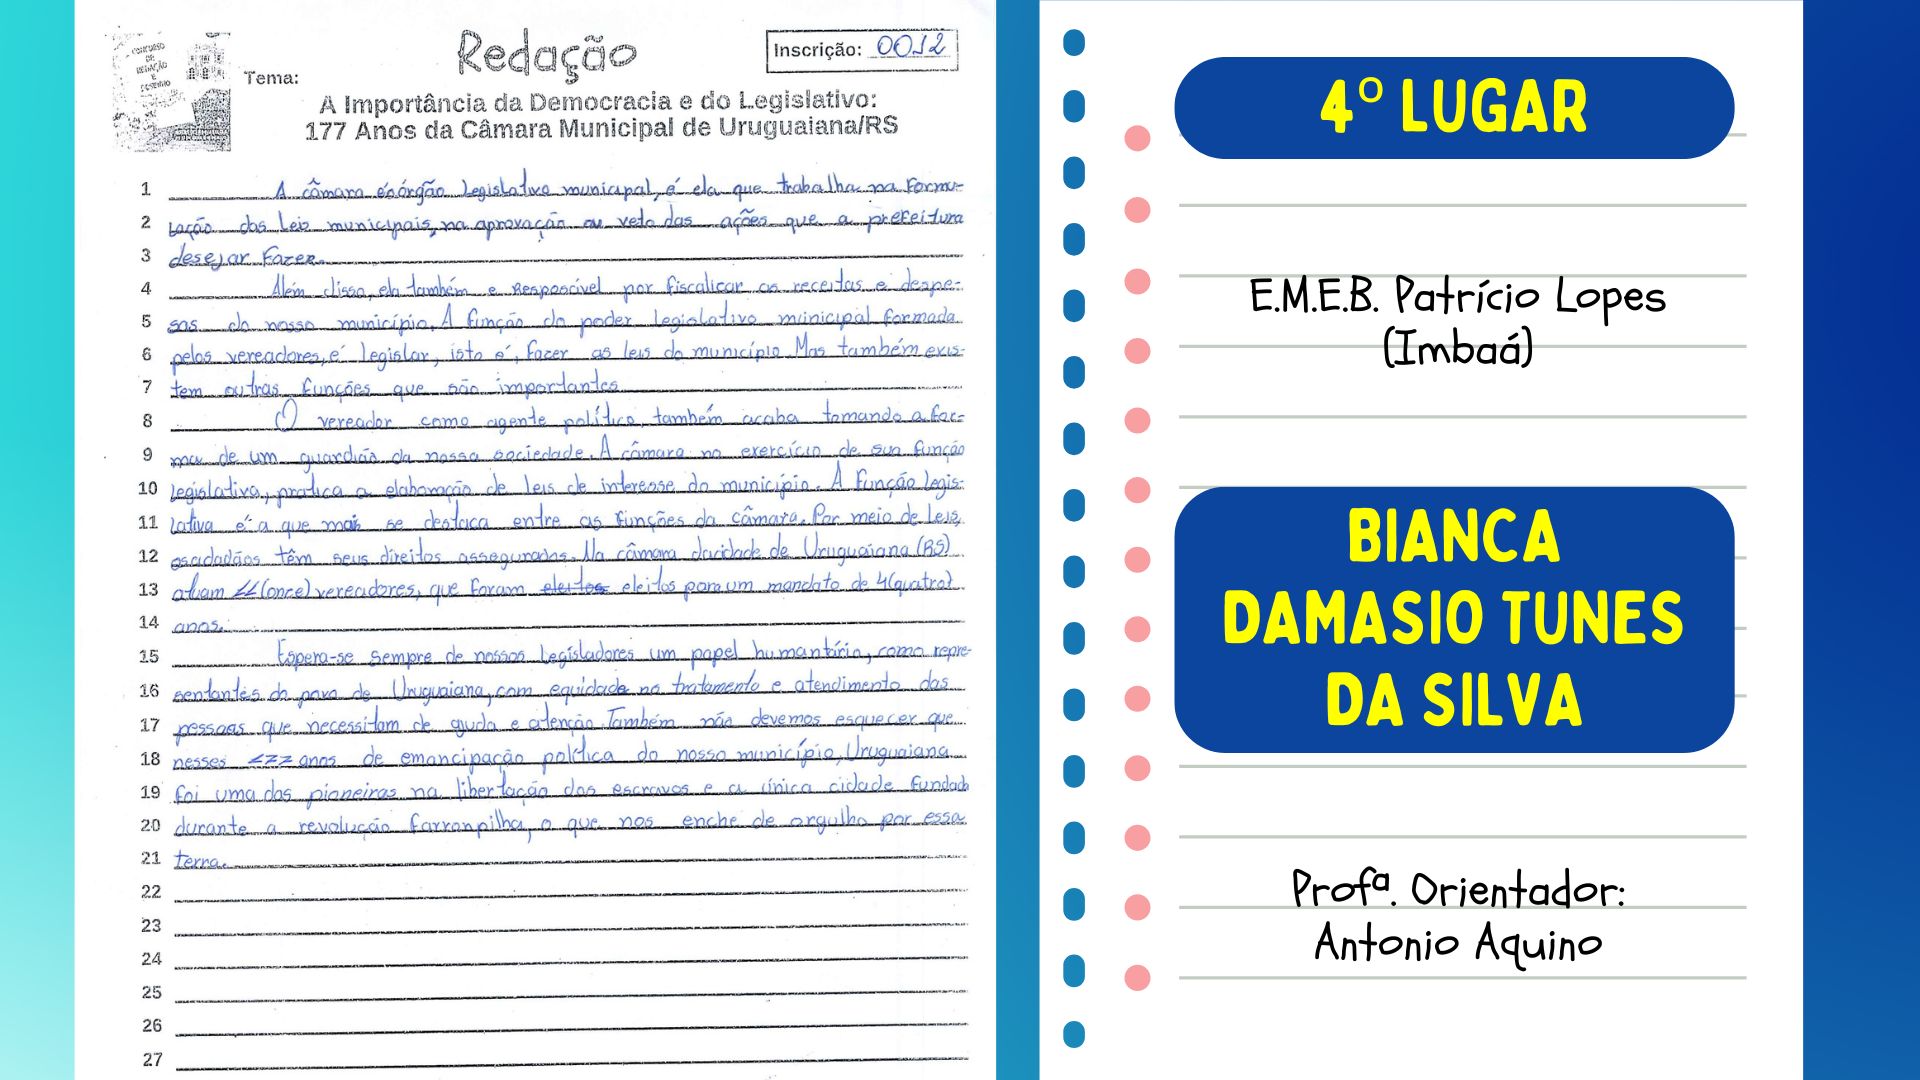 CONCURSO
DE
REDAÇÃO
E
Redação
Inscrição: 0012
Tema:
A Importância da Democracia e do Legislativo:
177 Anos da Câmara Municipal de Uruguaiana/RS
1 A câmara é o órgão legislativo municipal, é ela que trabalha na formu-
2 lação das leis municipais, na aprovação ou veto das ações que a prefeitura
3 desejar fazer.
4 Além disso, ela também e responcível por fiscalicar as receitas e despe-
5 sas do nosso município. A função do poder legislativo municipal formada
6 pelos vereadores, é legislar, isto é, fazer as leis do município. Mas também exis-
7 tem outras funções que são importantes
8 O vereador como agente político, também acaba tomando a for-
9 ma de um guardião da nossa sociedade. A câmara no exercício de sua função
10 legislativa, pratica a elaboração de leis de interesse do município. A função legis-
11 lativa é a que mais se destaca entre as funções da câmara. Por meio de leis,
12 os cidadãos têm seus direitos assegurados. Na câmara da cidade de Uruguaiana (RS)
13 atuam 11 (once) vereadores, que foram eleitos eleitos para um mandato de 4 (quatro)
14 anos.
15 Espera-se sempre de nossos legisladores um papel humantário, como repre-
16 sentantes do povo de Uruguaiana, com equidade no tratamento e atendimento das
17 pessoas que necessitam de ajuda e atenção. Também não devemos esquecer que
18 nesses 177 anos de emancipação política do nosso município, Uruguaiana
19 foi uma das pioneiras na libertação dos escravos e a única cidade fundada
20 durante a revolução farroupilha, o que nos enche de orgulho por essa
21 terra.
22
23
24
25
26
27
4º LUGAR
E.M.E.B. Patrício Lopes
(Imbaá)
BIANCA
DAMASIO TUNES
DA SILVA
Profª. Orientador:
Antonio Aquino